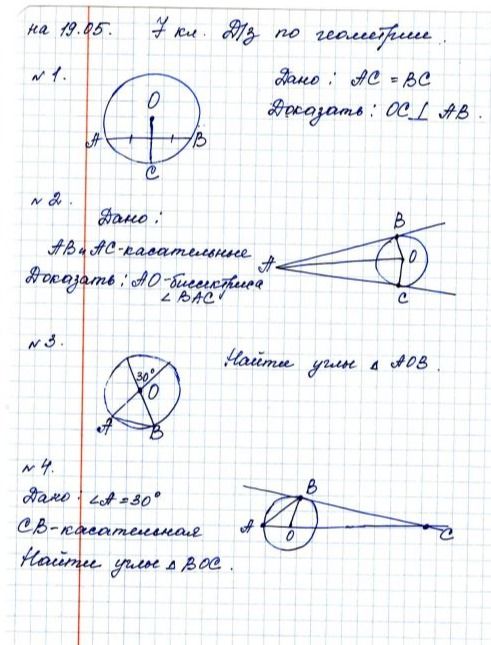 на 19.05. 7 кл. Д/з по геометрии.
№1.
Дано: AC = BC
Доказать: OC⊥ AB.
O
A
B
C
№2.
Дано:
AB и AC-касательные
Доказать: AO-биссектриса
∠BAC
B
A
O
C
№3.
Найти углы △ AOB.
30°
O
A
B
№4.
Дано: ∠A=30°
CB-касательная
Найти углы △ BOC.
B
A
O
C